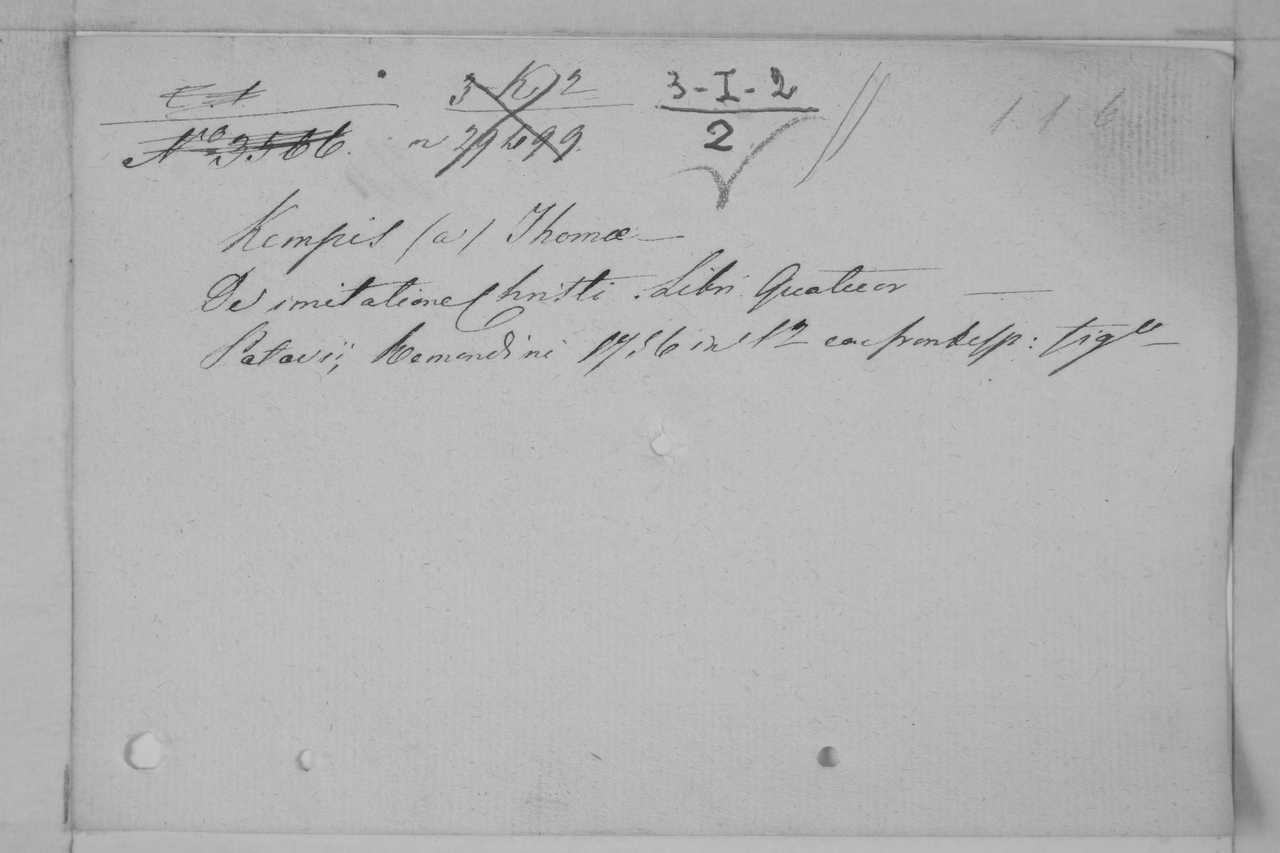 3 K 2 3-I-2 116
Nro 3566. n 29499. 2
Kempis (a) Thomæ
De imitatione Christi. Libri Quatuor
Patavii, Remondini 1756 in 12 cac frontesp: fig.to